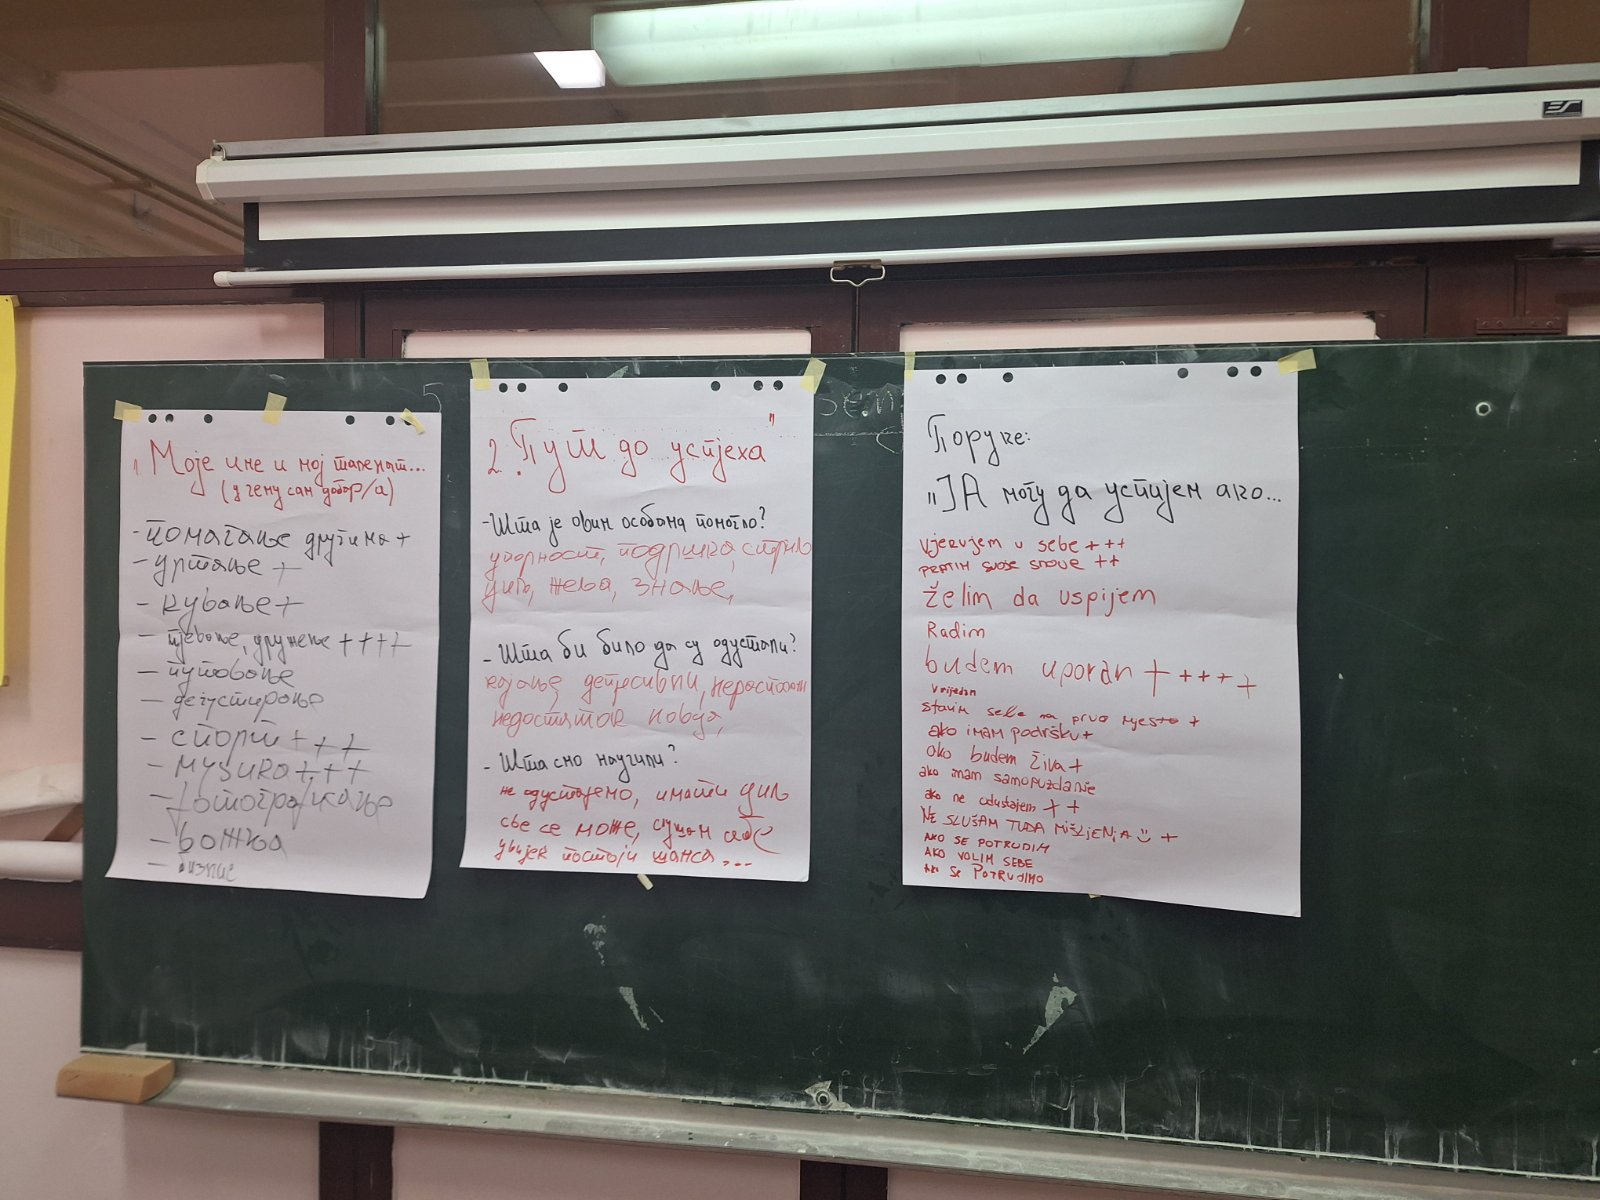 1. Моје име и мој таленат...
(у чему сам добар/а)
- помагање другима +
- цртање +
- кување +
- пјевање, дружење ++++
- путовање
- дегустирање
- спорт +++
- музика +++
- фотографисање
- вожња
- бизнис
2. "Пут до успјеха"
- Шта је овим особама помогло?
упорност, подршка,
циљ, жеља, знање,
- Шта би било да су одустали?
кајање, депресивни, нерасположени
недостатак новца,
- Шта смо научили?
не одустајемо, имати циљ
све се може, слушам себе
увијек постоји шанса...
Поруке:
"JA могу да успијем ако...
vjerujem u sebe +++
PRATIM SVOJE SNOVE ++
želim da uspijem
Radim
budem uporan +++++
vrijedan
stavim sebe na prvo mjesto +
ako imam podršku +
ako budem živa +
ako imam samopuzdanje
ako ne odustajem ++
NE SLUŠAM TUĐA MIŠLJENJA ☺ +
AKO SE POTRUDIM
AKO VOLIM SEBE
AKO SE POTRUDIMO
ES